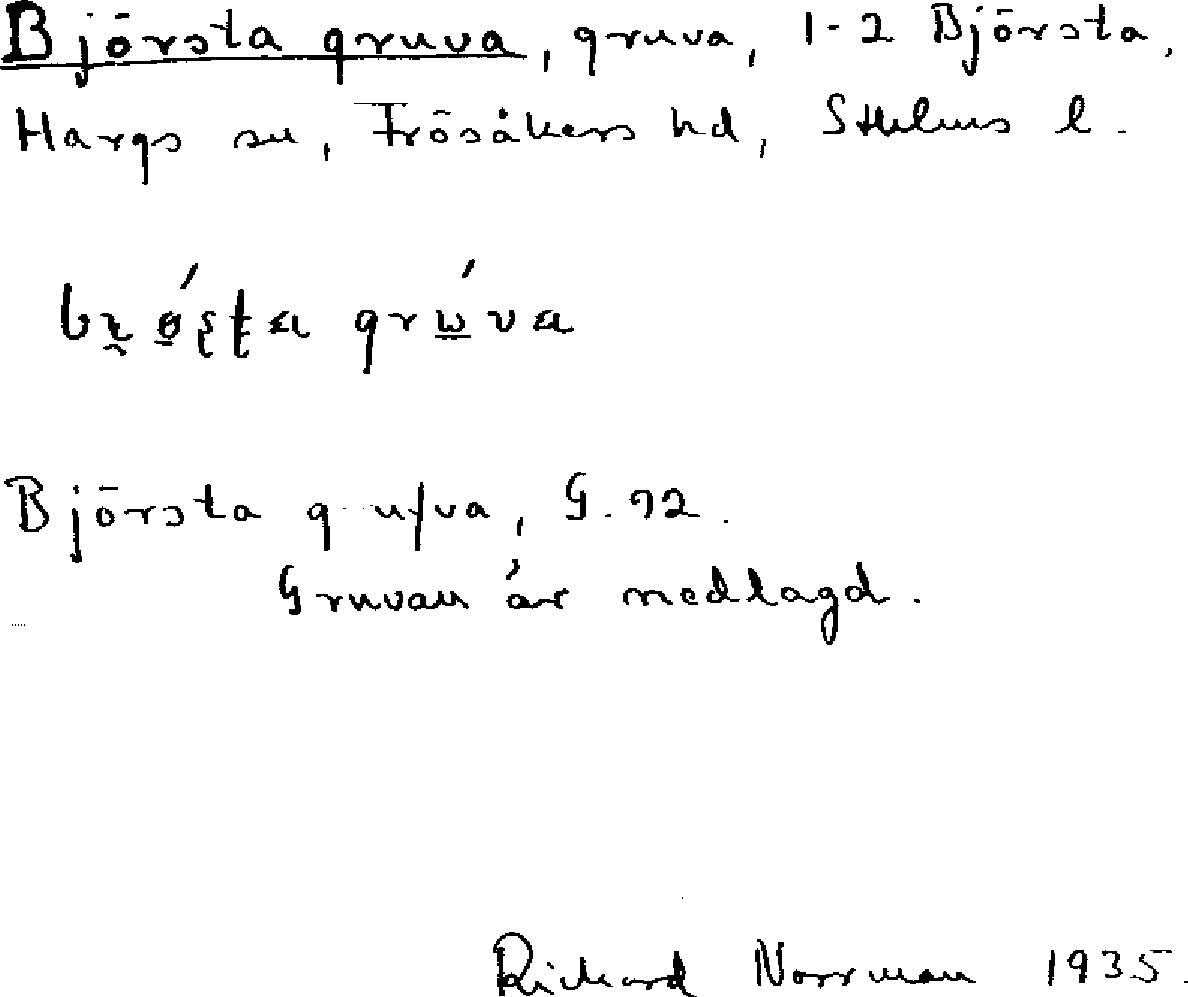 Björsta gruva, gruva, 1-2 Björsta,
Hargs sn, Frösåkers hd, Sthlms l.
Björsta gruva, G. 92.
Gruvan är nedlagd.
Richard Norrman 1935.